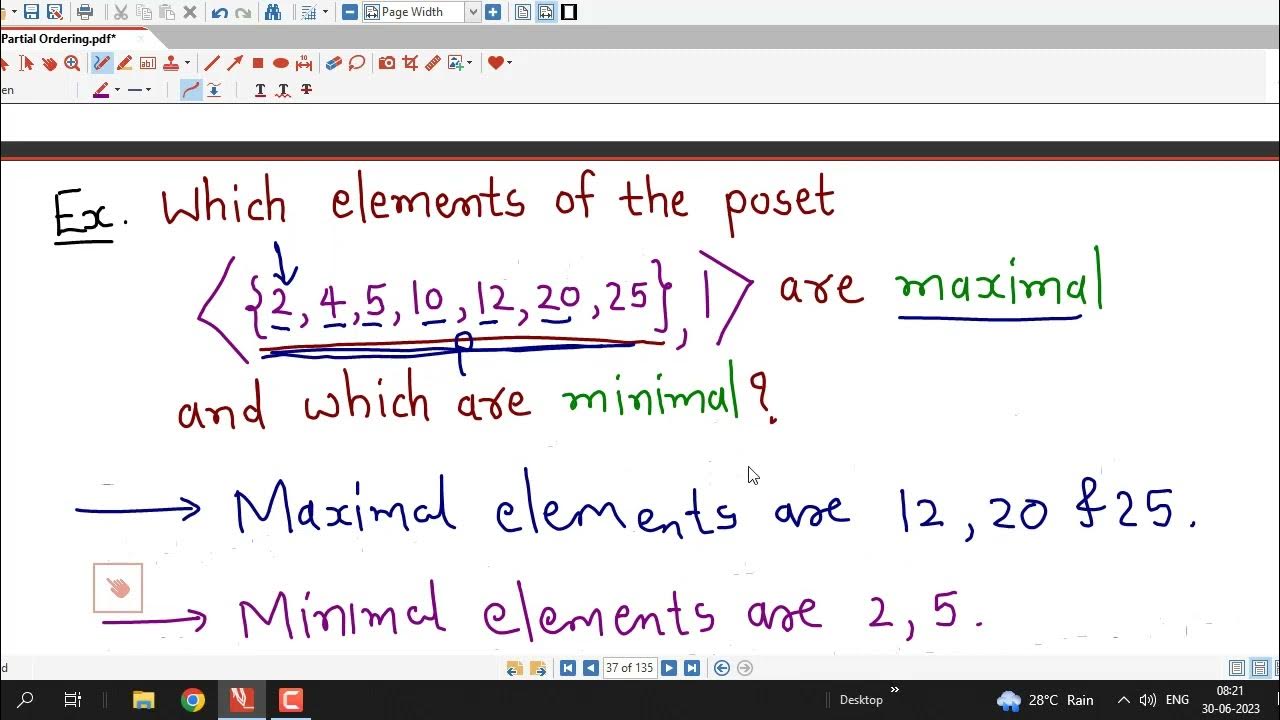 Page Width
Partial Ordering.pdf*
en
Ex. Which elements of the poset
<{2, 4, 5, 10, 12, 20, 25}, |> are maximal
and which are minimal?
→ Maximal elements are 12, 20 & 25.
→ Minimal elements are 2, 5.
d
37 of 135
Desktop
»
28°C Rain
ENG
08:21
30-06-2023